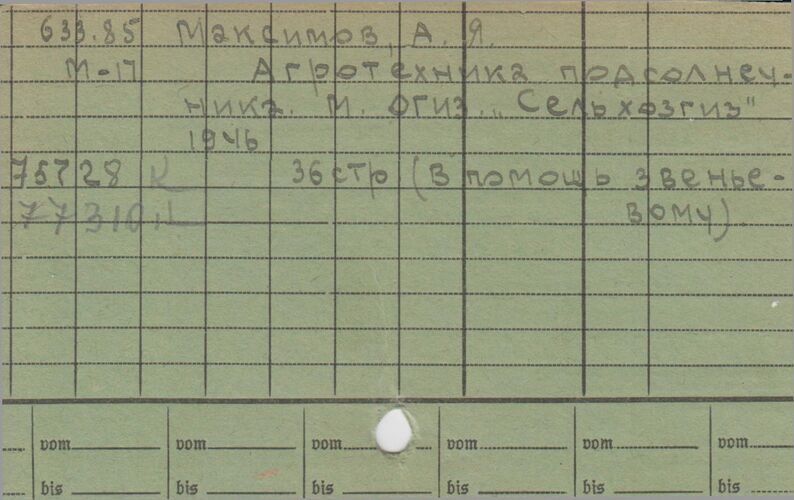 633.85 Максимов, А. Я.
М-17 Агротехника подсолнеч-
ника. М. ОГИЗ „Сельхозгиз"
1946
75728 к 36 стр (В помощь звенье-
77310 вому).
vom vom vom vom vom vom
bis bis bis bis bis bis